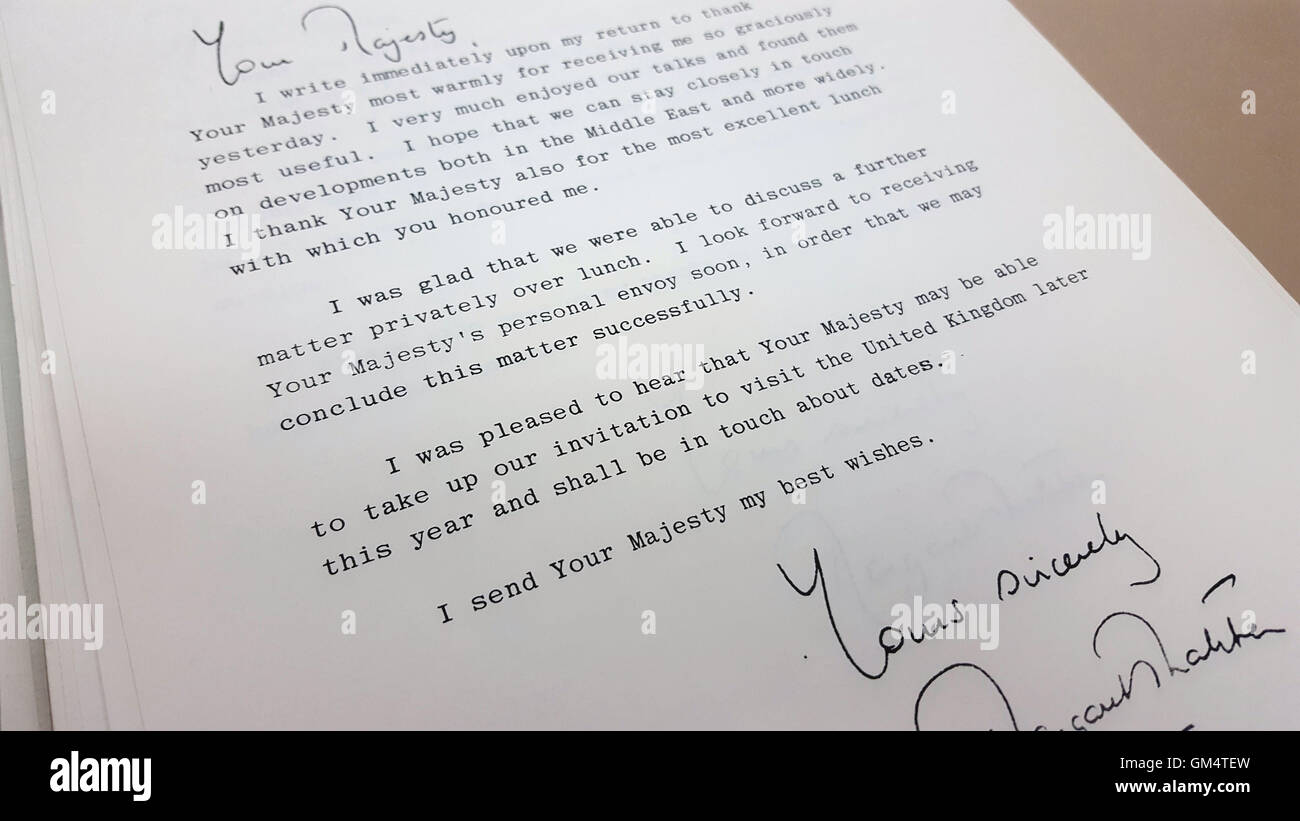 Your Majesty,
I write immediately upon my return to thank
Your Majesty most warmly for receiving me so graciously
yesterday. I very much enjoyed our talks and found them
most useful. I hope that we can stay closely in touch
on developments both in the Middle East and more widely.
I thank Your Majesty also for the most excellent lunch
with which you honoured me.
I was glad that we were able to discuss a further
matter privately over lunch. I look forward to receiving
Your Majesty's personal envoy soon, in order that we may
conclude this matter successfully.
I was pleased to hear that Your Majesty may be able
to take up our invitation to visit the United Kingdom later
this year and shall be in touch about dates.
I send Your Majesty my best wishes.
Yours sincerely
Margaret Thatcher
alamy stock photo
alamy
a
alamy
Image ID: GM4TEW
www.alamy.com